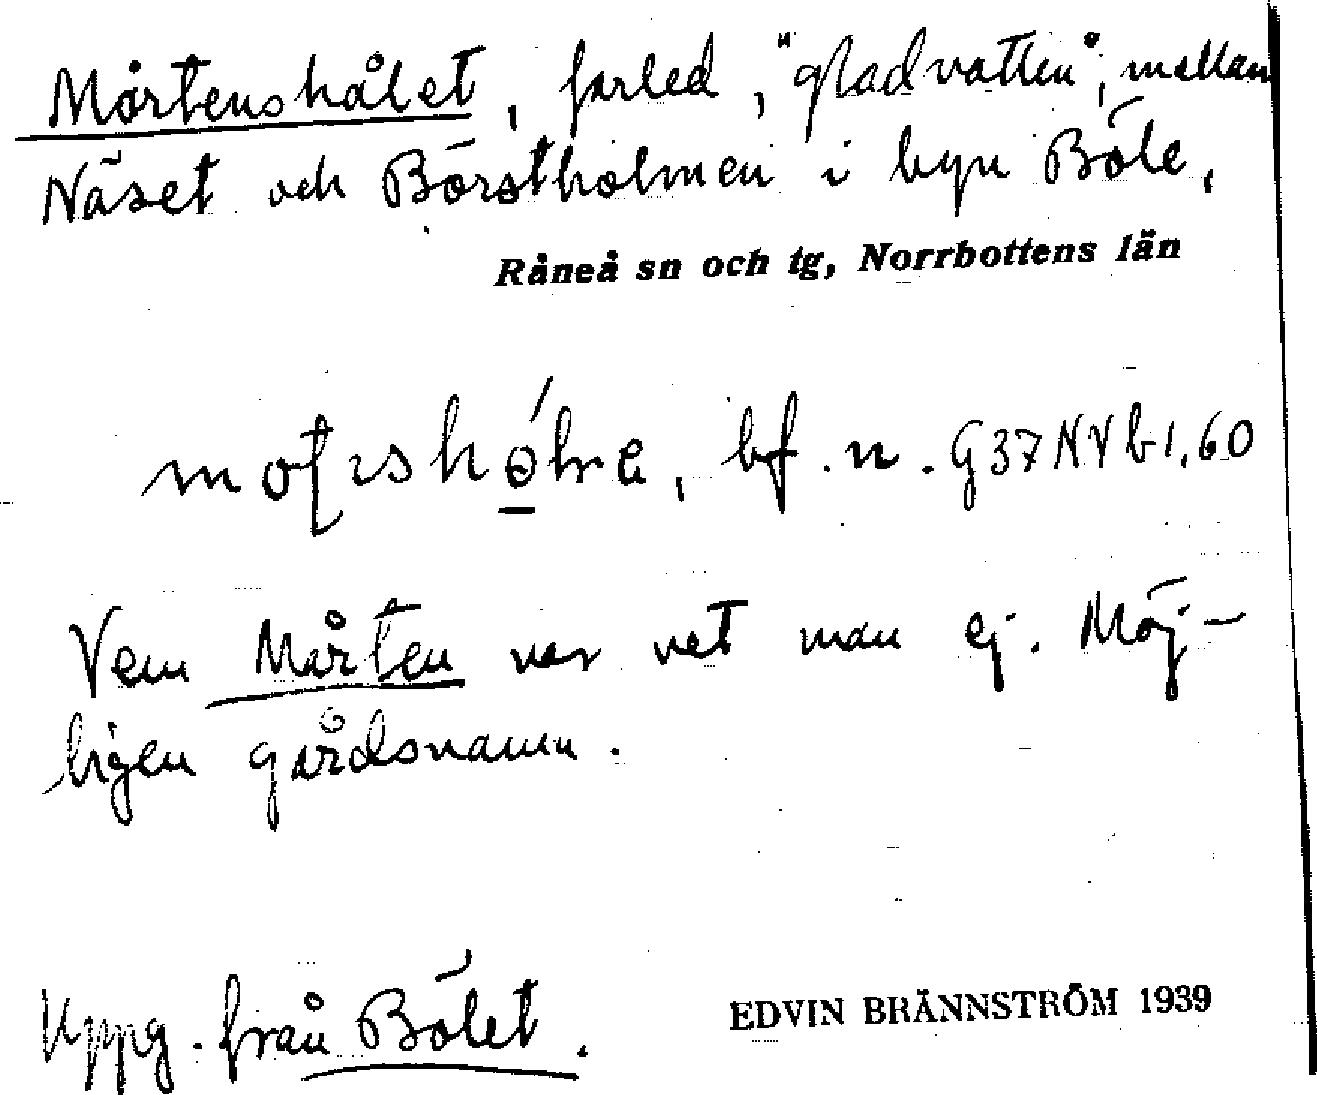 Mårtenshålet, farled, "gladvatten", mellan
Näset och Börstholmen i byn Böle,
Råneå sn och tg, Norrbottens län
bf. n. G37NVb1,60
Vem Mårten var vet man ej. Möj-
ligen gårdsnamn.
Uppg. från Bölet.
EDVIN BRÄNNSTRÖM 1939